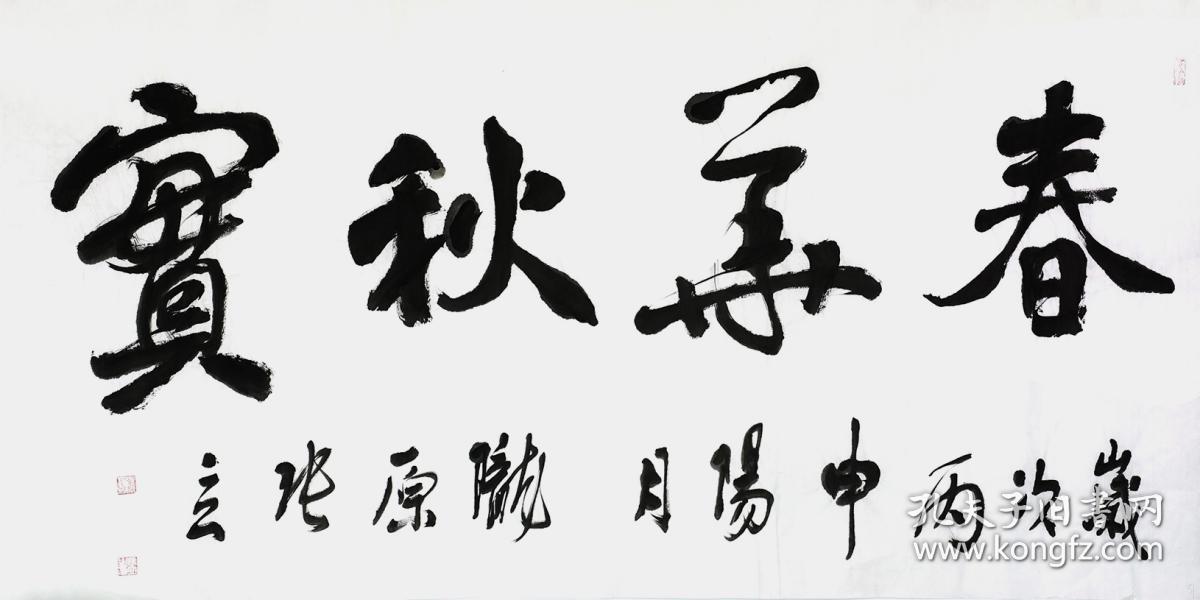 春華秋實
歲次丙申陽月 隴原張立
孔夫子旧書网
www.kongfz.com